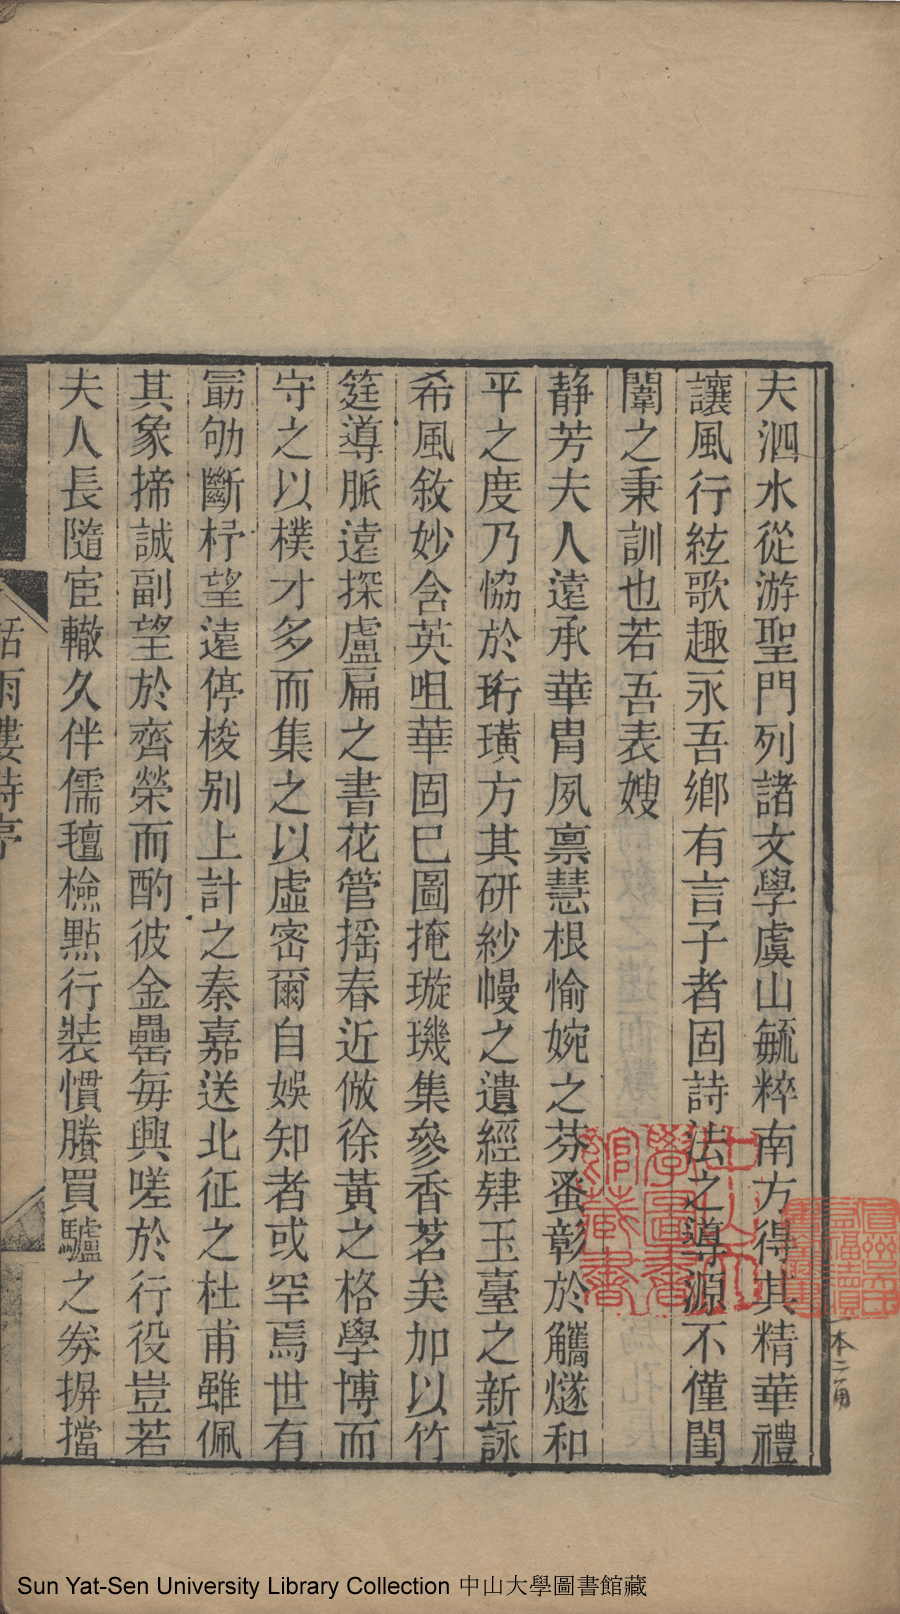 夫泗水從游聖門列諸文學虞山毓粹南方得其精華禮
讓風行絃歌趣永吾鄉有言子者固詩法之導源不僅閨
闈之秉訓也若吾表嫂
靜芳夫人遠承華胄夙禀慧根愉婉之芬蚤彰於觿燧和
平之度乃恊於珩璜方其研紗幔之遺經肄玉臺之新詠
希風敘妙含英咀華固已圖掩璇璣集參香茗矣加以竹
筳導脈遠探盧扁之書花管摇春近倣徐黃之格學博而
守之以樸才多而集之以虛密爾自娛知者或罕焉世有
勗劬斷杼望遠停梭别上計之秦嘉送北征之杜甫雖佩
其象揥誠副望於齊榮而酌彼金罍每興嗟於行役豈若
夫人長隨宦轍久伴儒氊檢點行裝慣賸買驢之券摒擋
話雨樓詩序
中山大學圖書館藏書
本二角
Sun Yat-Sen University Library Collection 中山大學圖書館藏